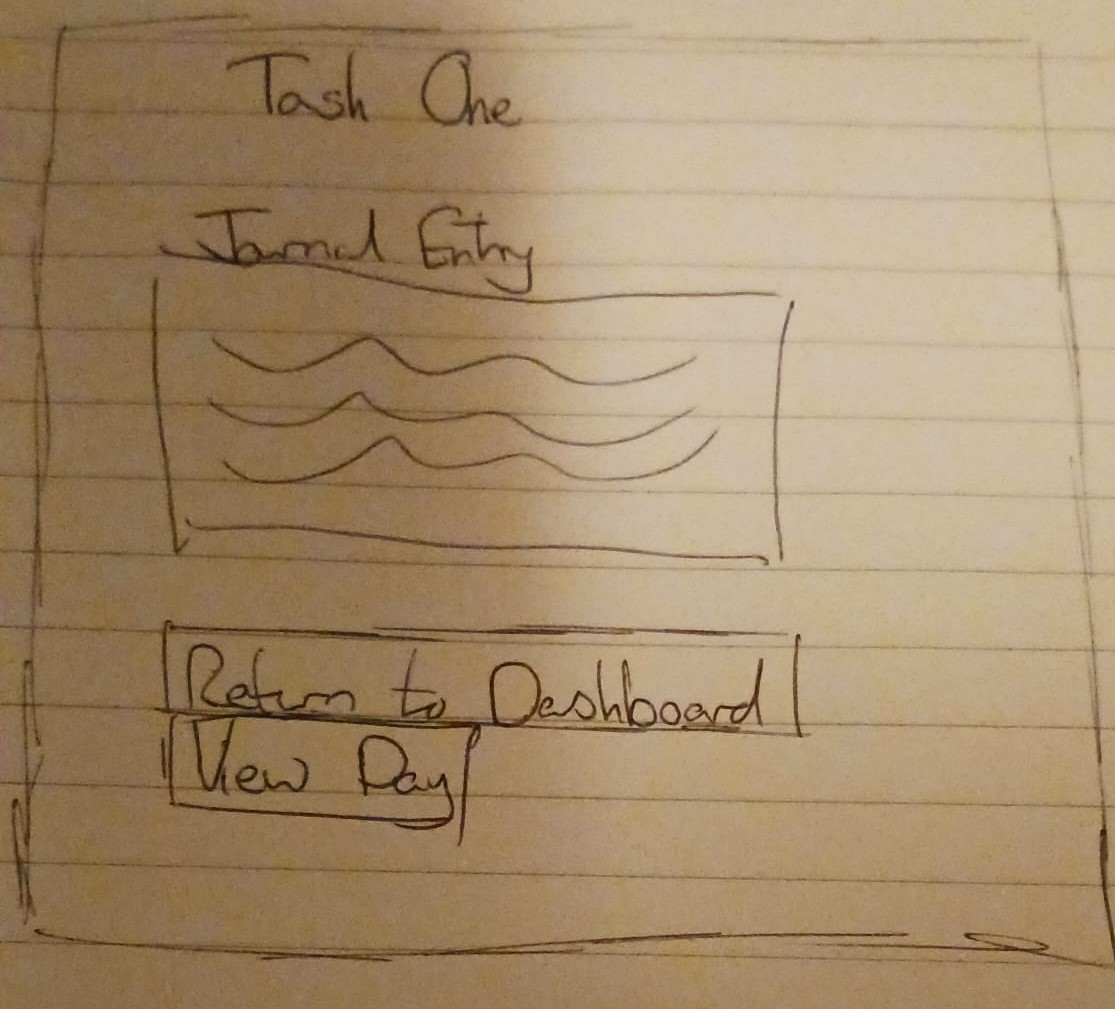 Task One
Journal Entry
Return to Dashboard
View Day